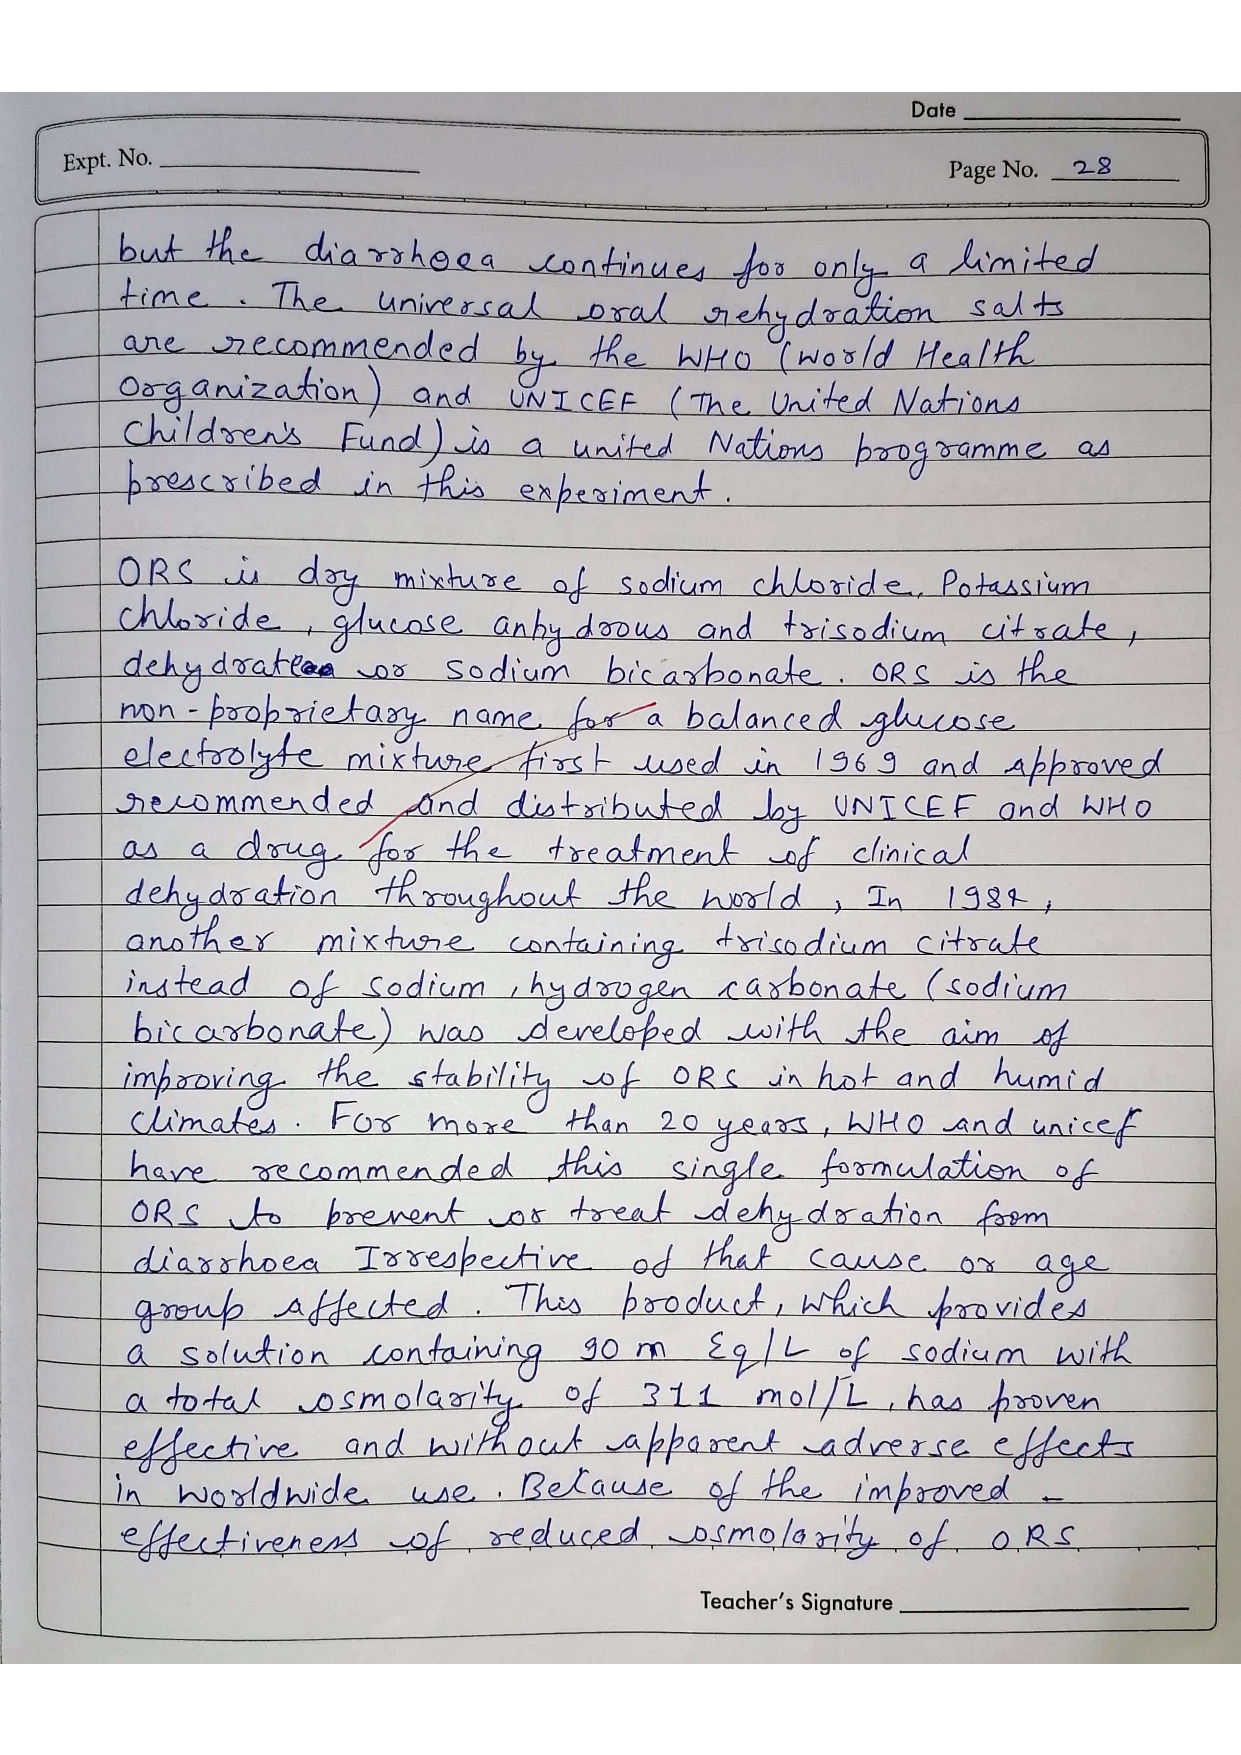 Date
Expt. No.
Page No. 28
but the diarrhoea continues for only a limited
time. The universal oral rehydration salts
are recommended by the WHO (World Health
Organization) and UNICEF (The United Nations
Children's Fund) is a united Nations programme as
prescribed in this experiment.
ORS is dry mixture of sodium chloride, Potassium
chloride, glucose anhydrous and trisodium citrate,
dehydrate or sodium bicarbonate. ORS is the
non-proprietary name for a balanced glucose
electrolyte mixture first used in 1969 and approved
recommended and distributed by UNICEF and WHO
as a drug for the treatment of clinical
dehydration throughout the world, In 1984,
another mixture containing trisodium citrate
instead of sodium, hydrogen carbonate (sodium
bicarbonate) was developed with the aim of
improving the stability of ORS in hot and humid
climates. For more than 20 years, WHO and unicef
have recommended this single formulation of
ORS to prevent or treat dehydration from
diarrhoea Irrespective of that cause or age
group affected. This product, which provides
a solution containing 90 m Eq/L of sodium with
a total osmolarity of 311 mol/L, has proven
effective and without apparent adverse effects
in worldwide use. Because of the improved -
effectiveness of reduced osmolarity of ORS
Teacher's Signature